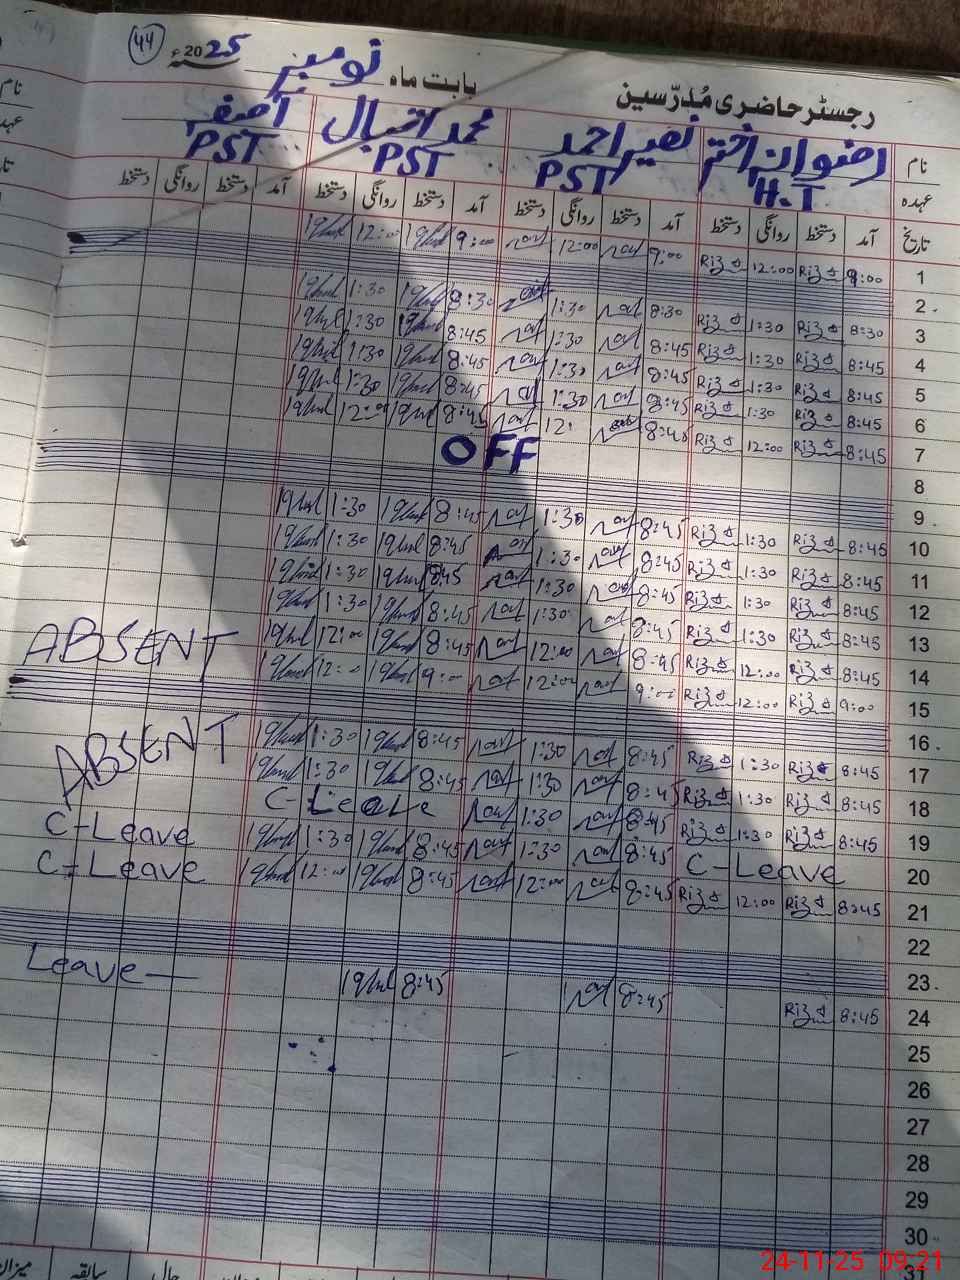 44
2025ء
بابت ماہ نومبر
رجسٹر حاضری مُدرّسین
نام رضوان اختر نصیر احمد محمد اقبال آصف
عہدہ H.T PST PST PST
تاریخ آمد دستخط روانگی دستخط آمد دستخط روانگی دستخط آمد دستخط روانگی دستخط آمد دستخط روانگی دستخط
1 9:00 Riz 12:00 Riz 9:00 12:00 9:00 Iqbal 12:00 Iqbal
2
3 8:30 Riz 1:30 Riz 8:30 1:30 8:30 Iqbal 1:30 Iqbal
4 8:45 Riz 1:30 Riz 8:45 1:30 8:45 Iqbal 1:30 Iqbal
5 8:45 Riz 1:30 Riz 8:45 1:30 8:45 Iqbal 1:30 Iqbal
6 8:45 Riz 1:30 Riz 8:45 1:30 8:45 Iqbal 1:30 Iqbal
7 8:45 Riz 12:00 Riz 8:45 12: 8:45 Iqbal 12:00 Iqbal
8 OFF
9
10 8:45 Riz 1:30 Riz 8:45 1:30 8:45 Iqbal 1:30 Iqbal
11 8:45 Riz 1:30 Riz 8:45 1:30 8:45 Iqbal 1:30 Iqbal
12 8:45 Riz 1:30 Riz 8:45 1:30 8:45 Iqbal 1:30 Iqbal
13 8:45 Riz 1:30 Riz 8:45 1:30 8:45 Iqbal 1:30 Iqbal
14 8:45 Riz 12:00 Riz 8:45 12:00 8:45 Iqbal 12:00 Iqbal ABSENT
15 9:00 Riz 12:00 Riz 9:00 12:00 9:00 Iqbal 12:00 Iqbal
16
17 8:45 Riz 1:30 Riz 8:45 1:30 8:45 Iqbal 1:30 Iqbal ABSENT
18 8:45 Riz 1:30 Riz 8:45 1:30 8:45 Iqbal 1:30 Iqbal
19 8:45 Riz 1:30 Riz 8:45 1:30 C-Leave
20 C-Leave 8:45 1:30 8:45 Iqbal 1:30 Iqbal C-Leave
21 8:45 Riz 12:00 Riz 8:45 12:00 8:45 Iqbal 12:00 Iqbal C-Leave
22
23
24 8:45 Riz 8:45 8:45 Iqbal Leave
25
26
27
28
29
30
31
میزان سابقہ حال
24-11-25 09:21